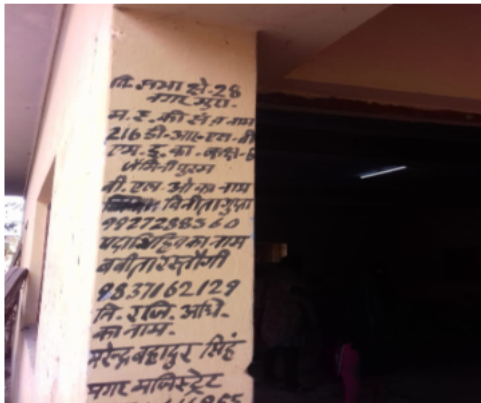 वि. सभा क्षे.-28
नगर मुरा.
म. के. की सं व नाम
216 डी-आर-एस-वी
एम. इ. का-कक्ष-6
जैमिनीपुरम
बी. एल. ओ का नाम
विनीता गुप्ता
9927288560
पदाभिहित का नाम
बबीता रस्तौगी
9837162129
नि. रजि. अधि.
का नाम-
नरेन्द्र बहादुर सिंह
नगर मजिस्ट्रेट